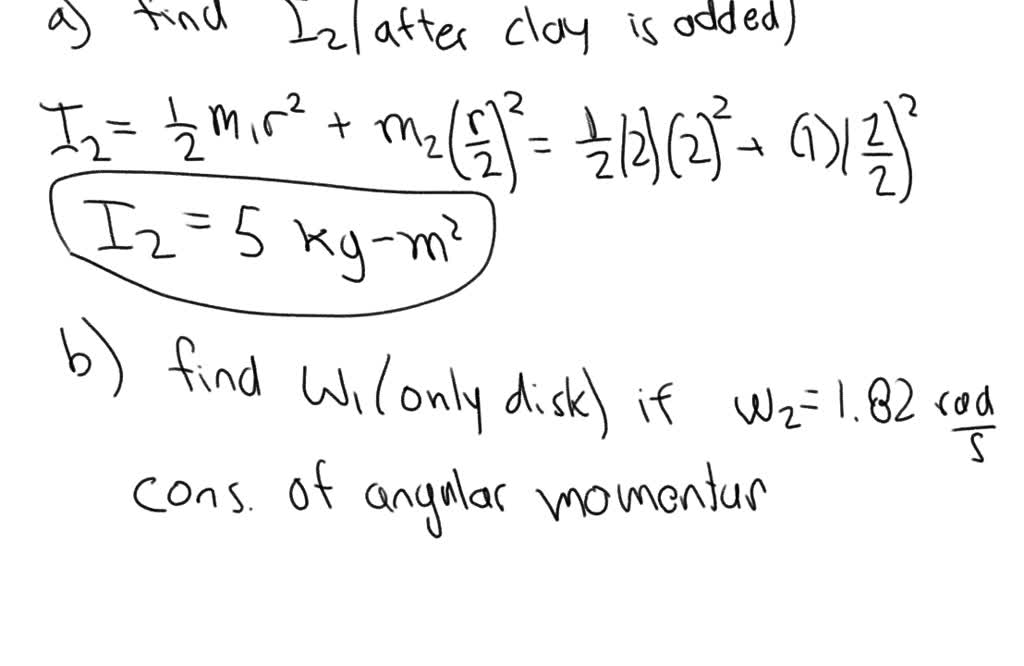 a) find I₂(after clay is added)
I₂ = ½ m₁r² + m₂(r/2)² = ½(2)(2)² + (1)(2/2)²
I₂ = 5 kg-m²
b) find W₁(only disk) if W₂=1.82 rad/s
cons. of angular momentum